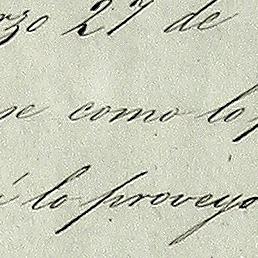 rzo 27 de
se como lo
i lo proveyo